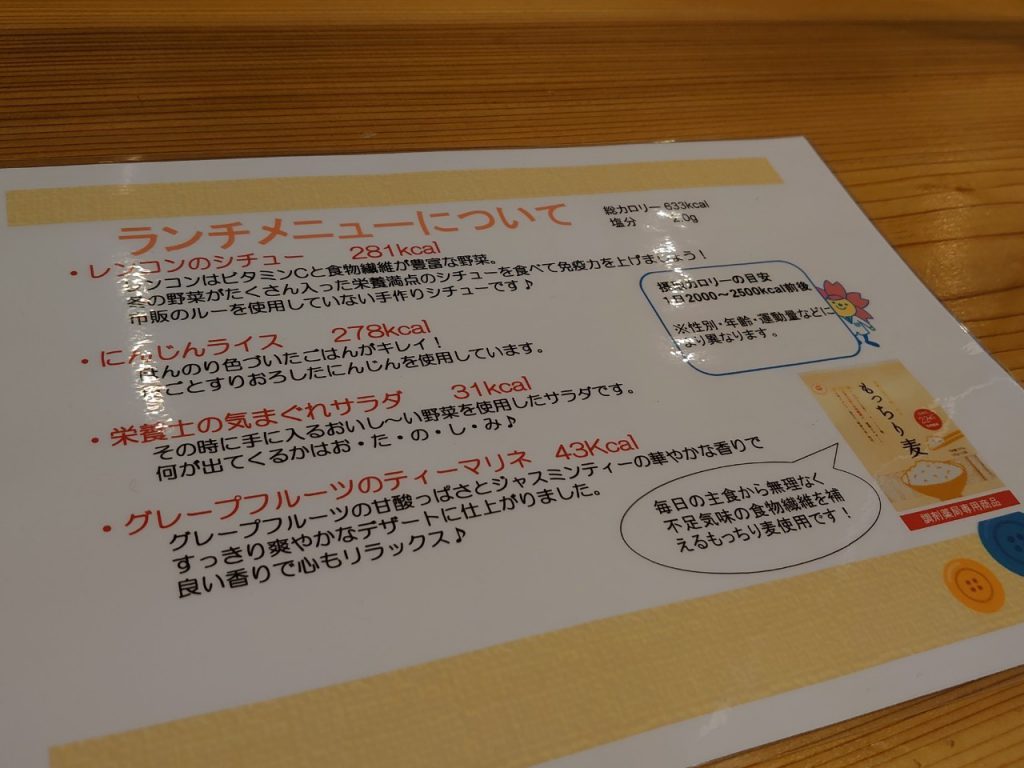 ランチメニューについて
総カロリー 633kcal
塩分 2.0g
・レンコンのシチュー 281kcal
レンコンはビタミンCと食物繊維が豊富な野菜。
冬の野菜がたくさん入った栄養満点のシチューを食べて免疫力を上げましょう！
市販のルーを使用していない手作りシチューです♪
・にんじんライス 278kcal
ほんのり色づいたごはんがキレイ！
丸ごとすりおろしたにんじんを使用しています。
・栄養士の気まぐれサラダ 31kcal
その時に手に入るおいし～い野菜を使用したサラダです。
何が出てくるかはお・た・の・し・み♪
・グレープフルーツのティーマリネ 43Kcal
グレープフルーツの甘酸っぱさとジャスミンティーの華やかな香りで
すっきり爽やかなデザートに仕上がりました。
良い香りで心もリラックス♪
摂取カロリーの目安
1日2000～2500kcal前後
※性別・年齢・運動量などに
より異なります。
もっちり麦
調剤薬局専用商品
毎日の主食から無理なく
不足気味の食物繊維を補
えるもっちり麦使用です！